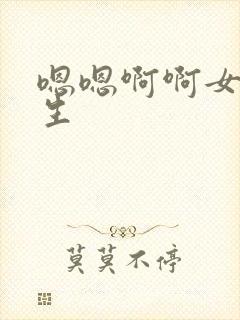 嗯嗯啊啊女
生
莫莫不停